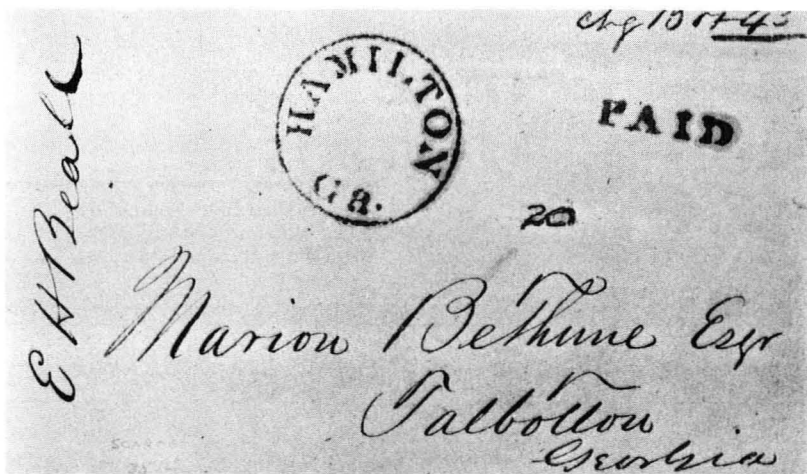 chg Box 43
HAMILTON
Ga.
PAID
20
E H Beall
Marion Bethune Esqr
Talbotton
Georgia